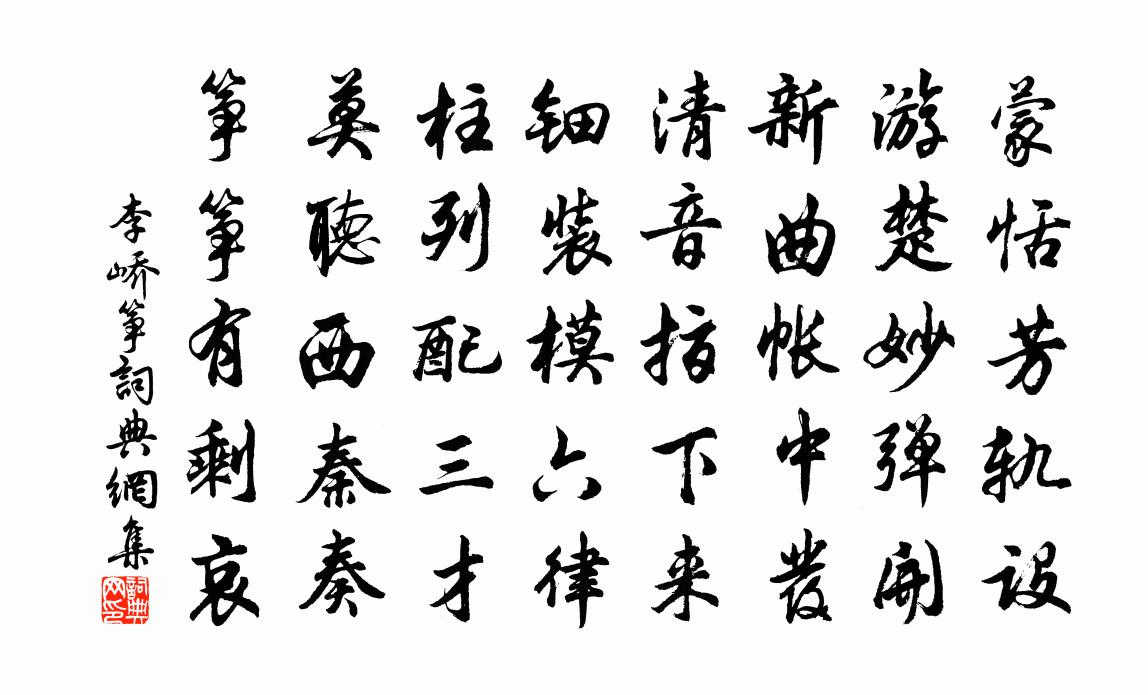 蒙恬芳轨设
游楚妙弹開
新曲帐中發
清音指下来
钿裝模六律
柱列配三才
莫聽西秦奏
筝筝有剩哀
李峤筝詞典網集
詞典网印